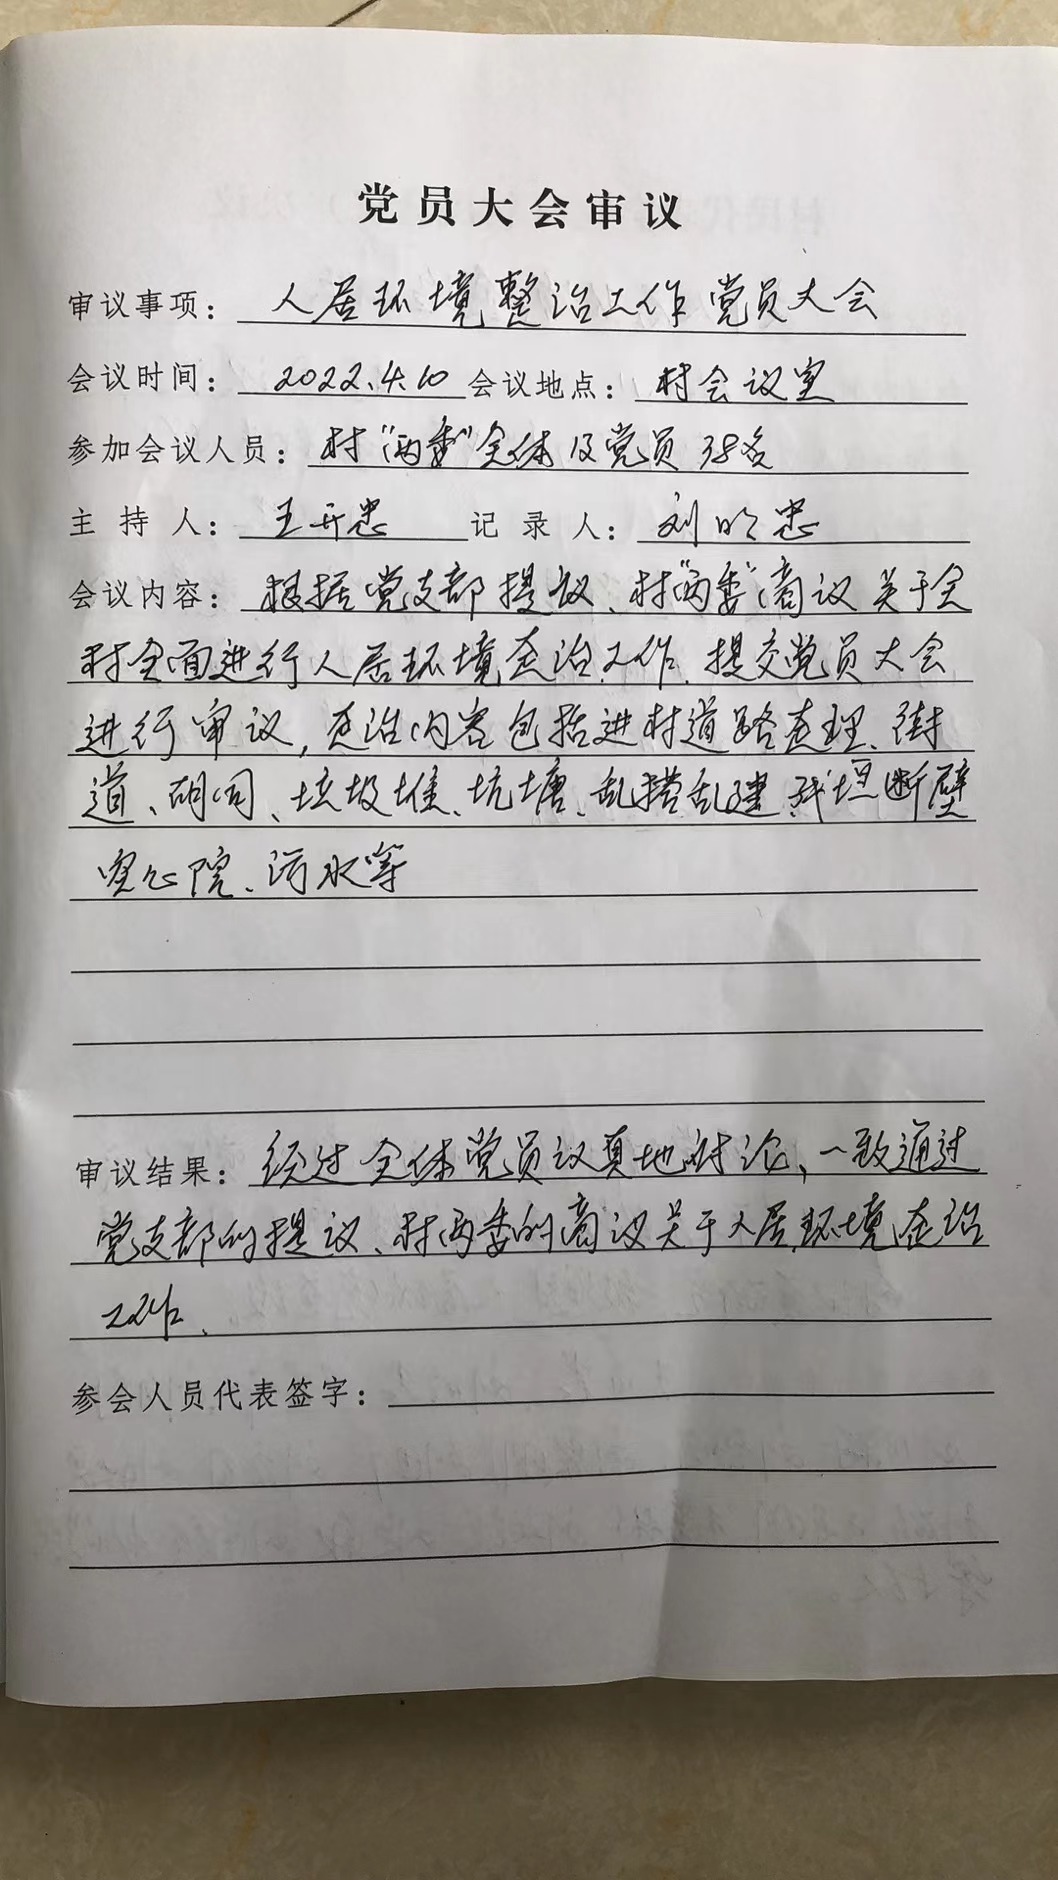 党员大会审议
审议事项：人居环境整治工作党员大会
会议时间：2022.4.10 会议地点：村会议室
参加会议人员：村“两委”全体及党员38名
主持人：王开忠 记录人：刘明忠
会议内容：根据党支部提议、村“两委”商议关于全
村全面进行人居环境整治工作、提交党员大会
进行审议，整治内容包括进村道路整理、街
道、胡同、垃圾堆、坑塘、乱搭乱建、残垣断壁
空心院、污水等
审议结果：经过全体党员议真地讨论、一致通过
党支部的提议、村两委的商议关于人居环境整治
工作、
参会人员代表签字：